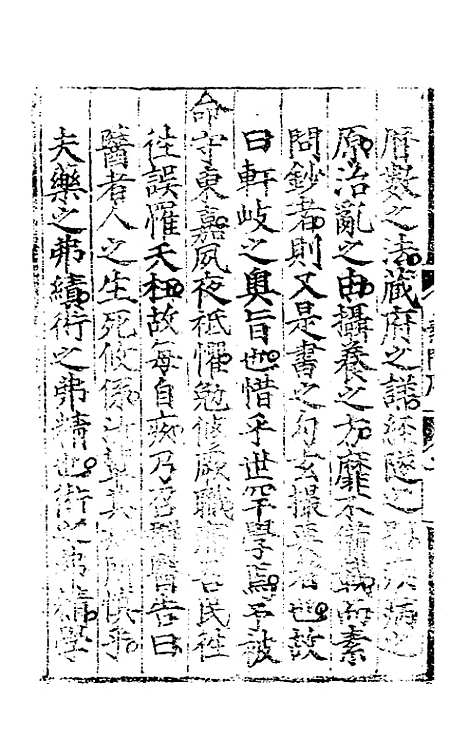 曆數之法藏府之詳經隧之疾病之
原治亂之由攝養之方靡不備焉而素
問鈔者則又是書之勾玄撮要者也故
曰軒岐之奥旨也惜乎世罕學焉予被
命守東嘉夙夜祇懼勉修厥職吾民往
往誤罹夭枉故每自疚乃召群醫告曰
醫者人之生死攸係其慎乎
夫藥之弗績術之弗精也術之弗精學